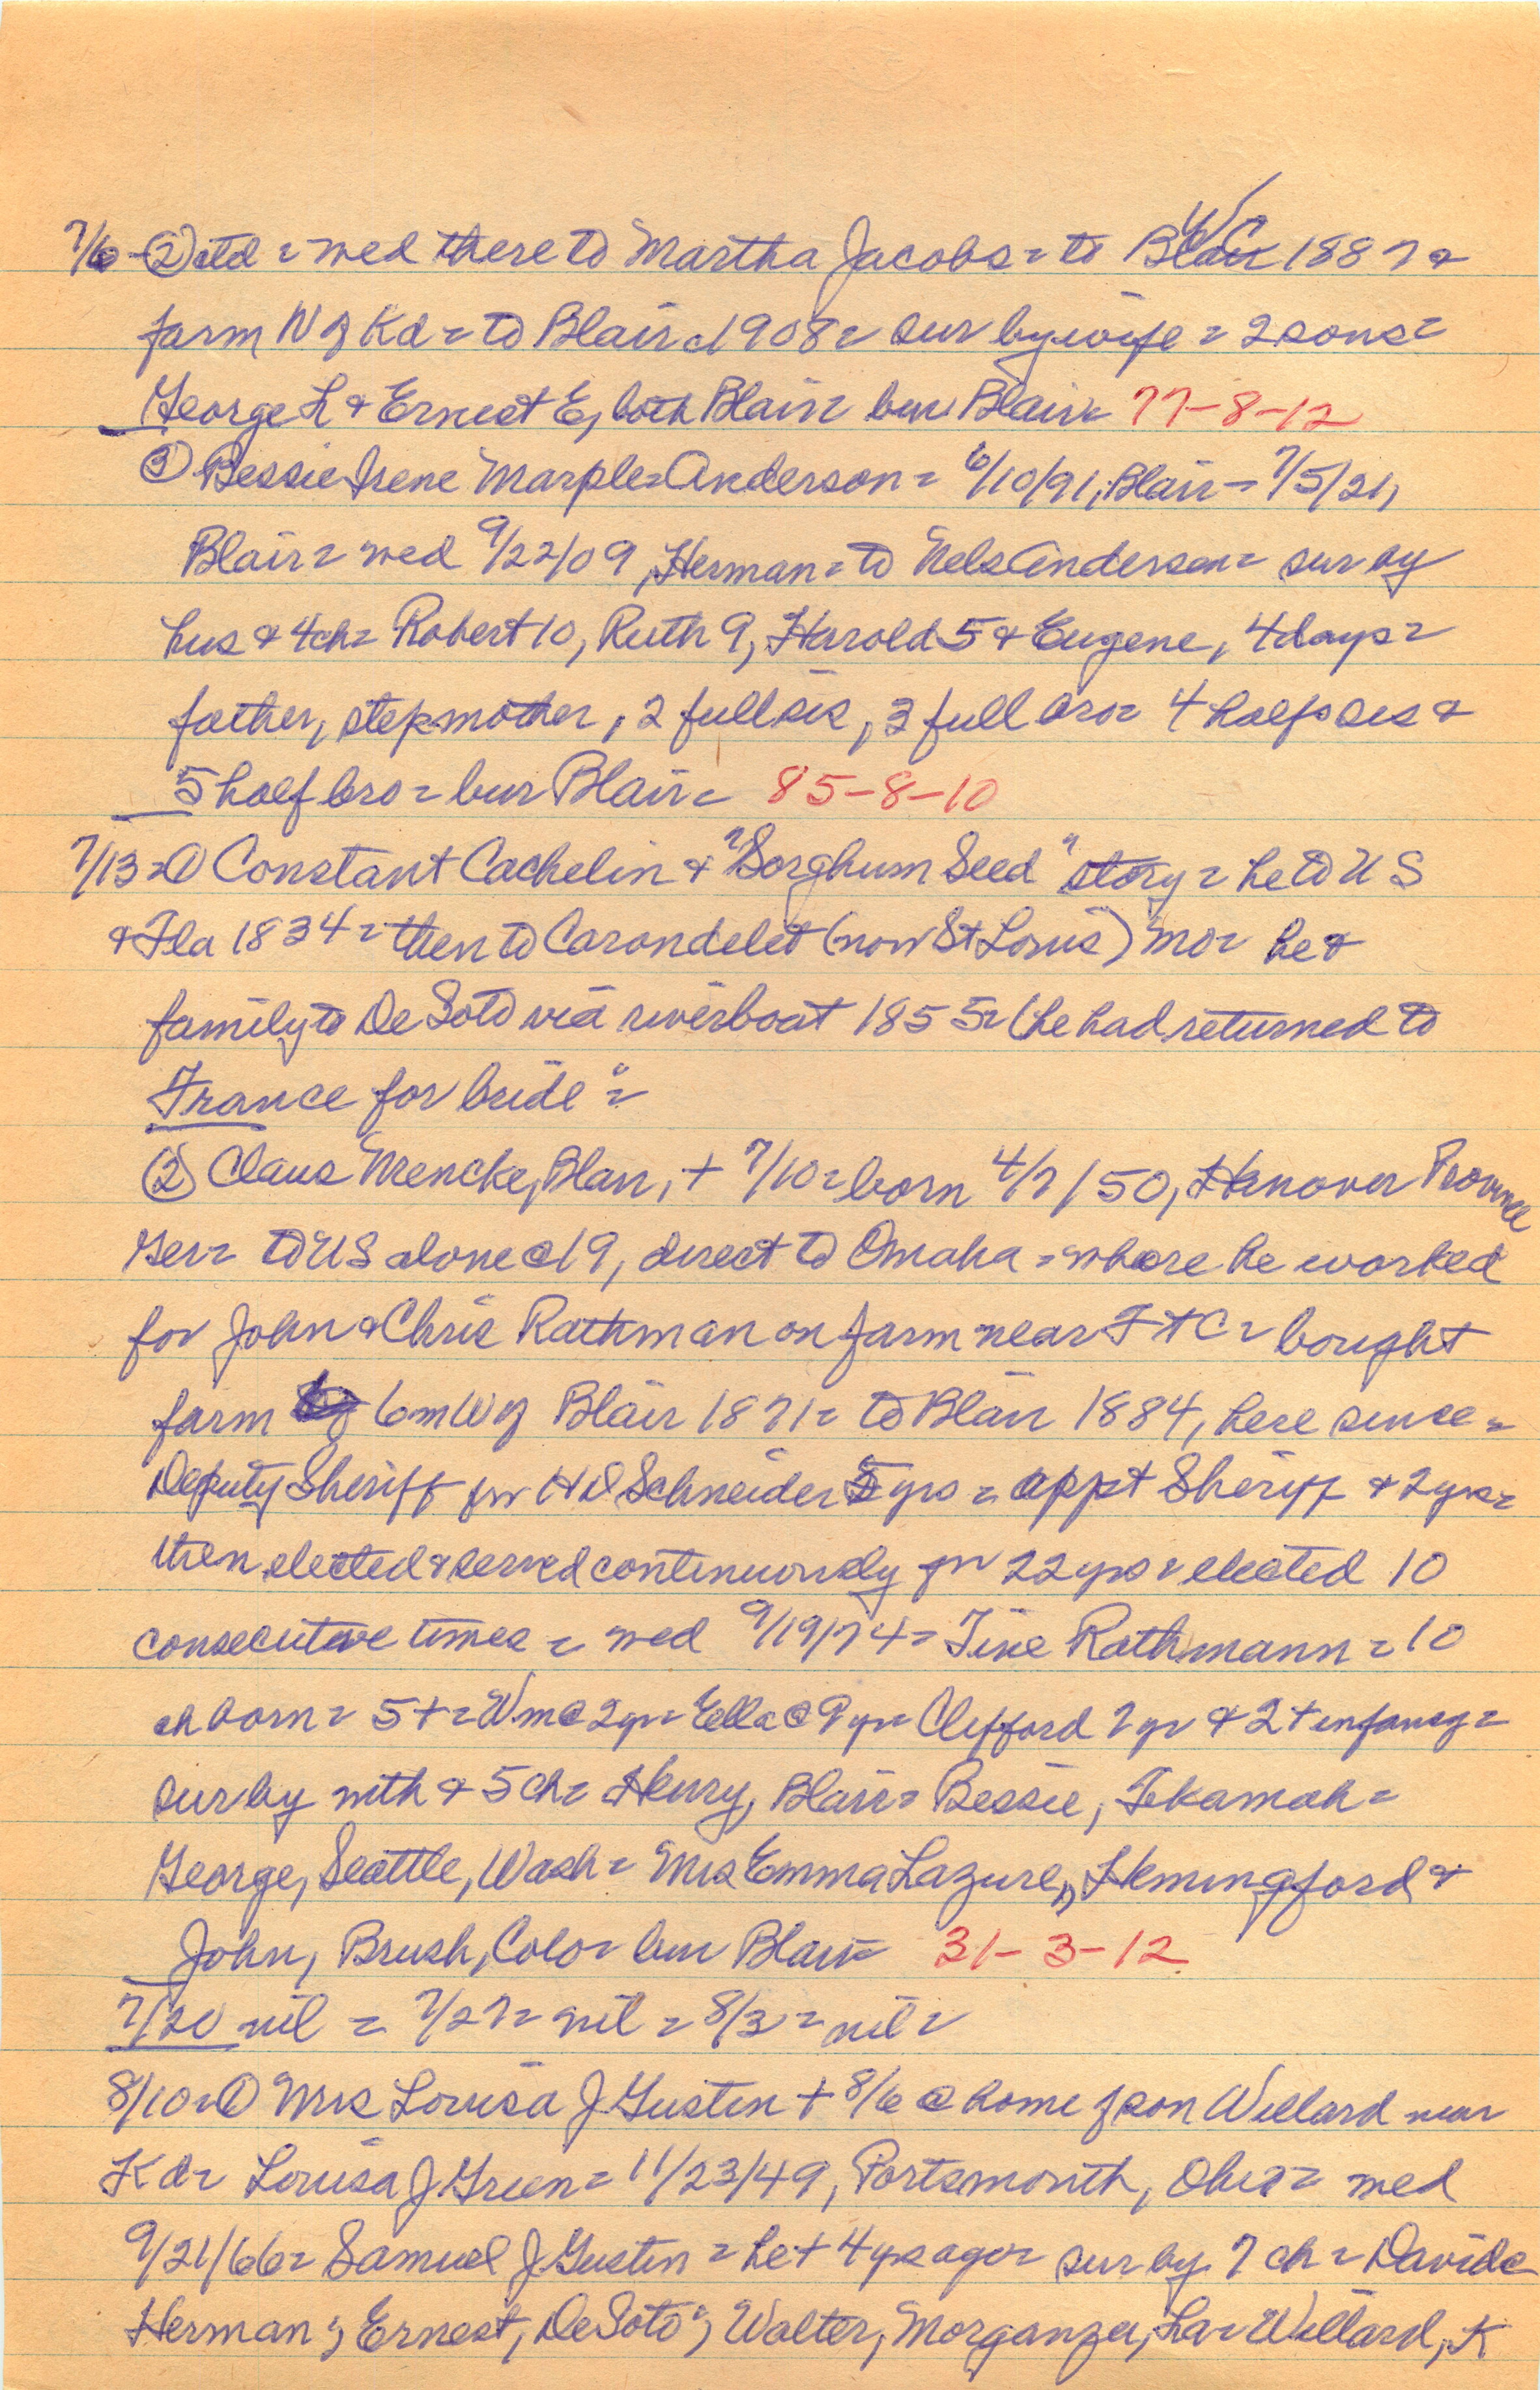 WC
7/6 - ② ctd = wed there to Martha Jacobs = to Blair 1887 &
farm W of Kd = to Blair 1908 = sur by wife = 2 sons =
George L & Ernest E, both Blair = bur Blair = 77-8-12
③ Bessie Irene Marple = Anderson = 6/10/91, Blair - 7/5/21,
Blair = wed 9/22/09, Herman = to Nels Anderson = sur by
hus & 4 ch = Robert 10, Ruth 9, Harold 5 & Eugene, 4 days =
father, stepmother, 2 full sis, 3 full bro = 4 half sis &
5 half bro = bur Blair = 85-8-10
7/13 = ① Constant Cachelin & "Sorghum Seed" story = he to US
& Fla 1834 = then to Carondelet (now St Louis) Mo = he &
family to DeSoto via riverboat 1855 = (he had returned to
France for bride" =
② Claus Mencke, Blair, + 7/10 = born 4/7/50, Hanover Province
Ger = to US alone @ 19, direct to Omaha = where he worked
for John & Chris Rathman on farm near Ft C = bought
farm 6 m W of Blair 1871 = to Blair 1884, here since =
Deputy Sheriff for H D Schneider 5 yrs = appt Sheriff & 2 yrs =
then elected & served continuously for 22 yrs = elected 10
consecutive times = wed 9/19/74 = Tine Rathmann = 10
ch born = 5 + = Wm @ 2 yr = Ella @ 9 yr = Clifford 2 yr & 2 + infancy =
sur by mth & 5 ch = Henry, Blair = Bessie, Tekamah =
George, Seattle, Wash = Mrs Emma Lazure, Hemingford &
John, Brush, Colo = bur Blair = 31-3-12
7/20 nil = 7/27 = nil = 8/3 = nil =
8/10 = ① Mrs Louisa J Gustin + 8/6 @ home of son Willard near
Kd = Louisa J Green = 11/23/49, Portsmouth, Ohio = wed
9/21/66 = Samuel J Gustin = he + 4 yrs ago = sur by 7 ch = David &
Herman; Ernest, DeSoto; Walter, Morganza, La = Willard, K